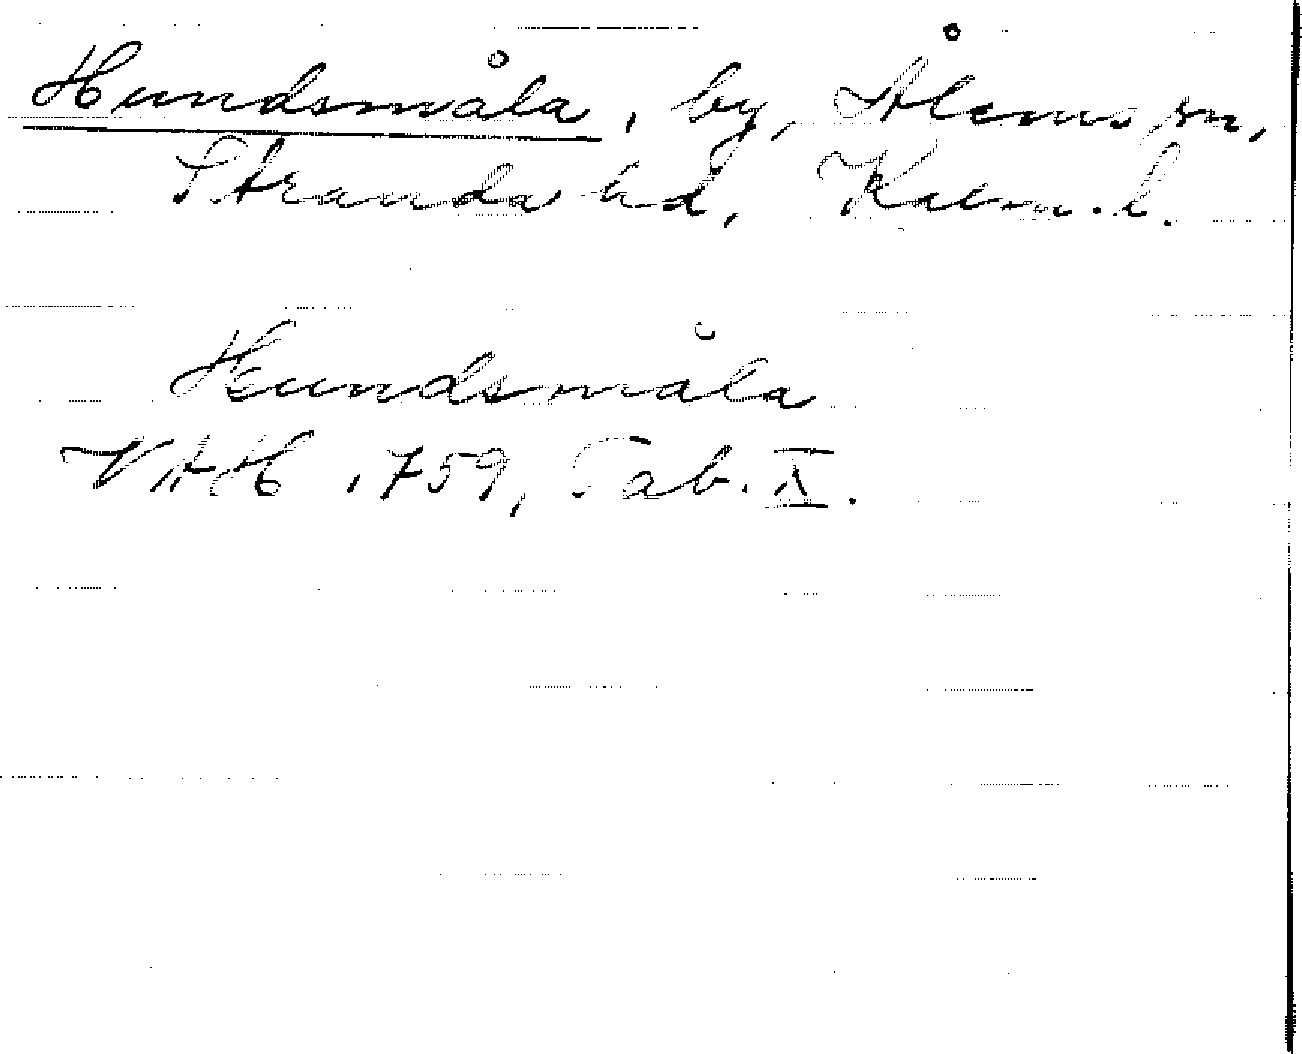 Hundsmåla, by, Ålems sn,
Stranda hd, Kalm. l.
Hundsmåla
VAH 1759, Tab. X.